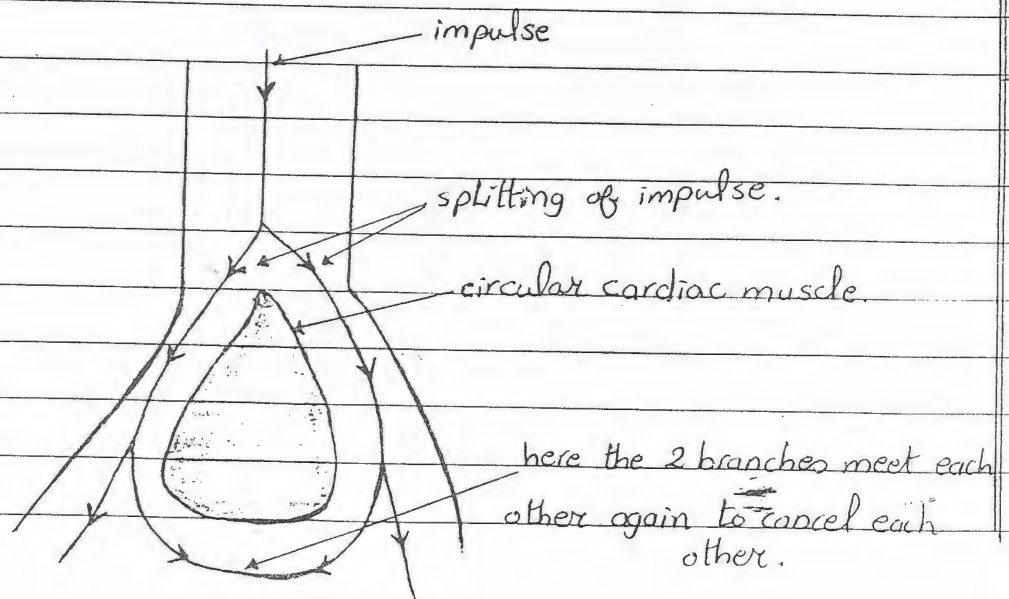 impulse
splitting of impulse.
circular cardiac muscle.
here the 2 branches meet each
other again to cancel each
other.